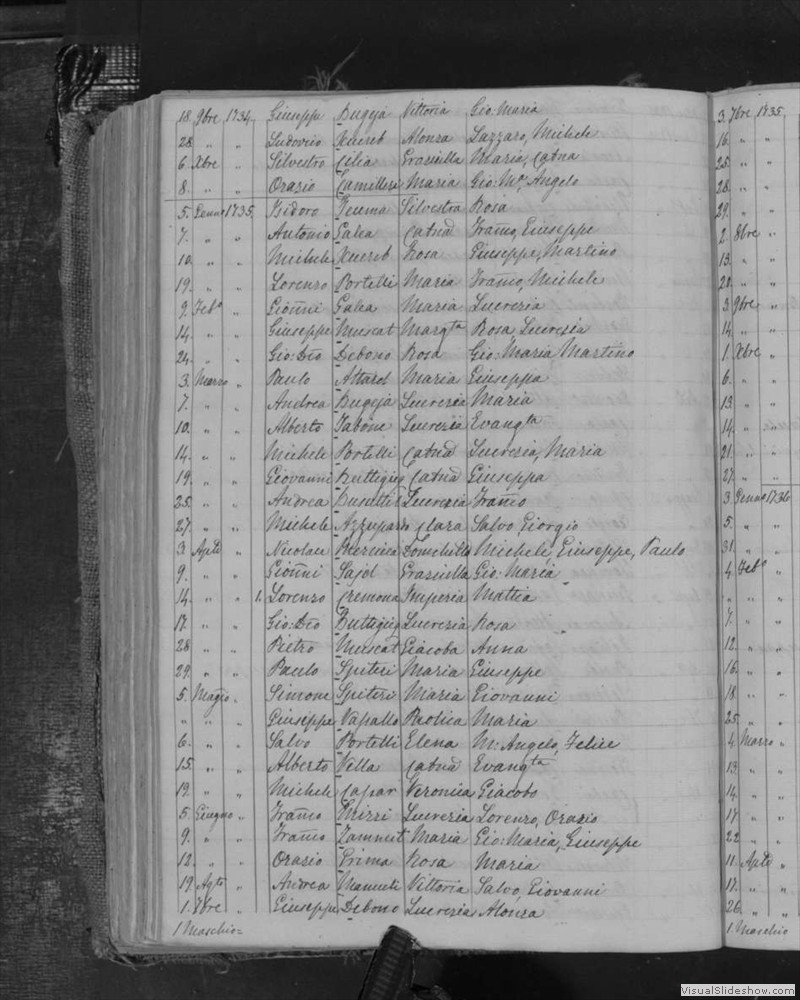 18. 9bre 1734. Giuseppe Bugeja Vittoria Gio: Maria
28 " " Ludovico Xuereb Alonza Lazzaro, Michele
6 Xbre " Silvestro Cilia Graziulla Maria, Catna
8. " " Orazio Camilleri Maria Gio: Ma. Angelo
5. Genno 1735. Isidoro Silvestra Rosa
7. " " Antonio Galea Catna Franco, Giuseppe
10. " " Michele Xuereb Rosa Giuseppe, Martino
19. " " Lorenzo Portelli Maria Franco, Michele
9. Febo " Gionni Galea Maria Lucrezia
14. " " Giuseppe Muscat Margta Rosa, Lucrezia
24. " " Gio: Dio Debono Rosa Gio: Maria Martino
3. Marzo " Paulo Attard Maria Giuseppa
7. " " Andrea Bugeja Lucrezia Maria
10. " " Alberto Tabone Lucrezia Evangta
14. " " Michele Portelli Catna Lucrezia, Maria
19. " " Giovanni Buttigieg Catna Giuseppa
25. " " Andrea Busuttil Lucrezia Franco
27. " " Michele Azzupardo Clara Salvo, Giorgio
3. Aple " Nicolau Domichilla Michele, Giuseppe, Paulo
9. " " Gionni Sajd Graziulla Gio: Maria
14. " " 1. Lorenzo Cremona Imperia Mattia
17. " " Gio: Dio Buttigieg Lucrezia Rosa
28 " " Pietro Muscat Giacoba Anna
29. " " Paulo Spiteri Maria Giuseppe
5. Maggio " Simone Spiteri Maria Giovanni
" " " Giuseppe Vapallo Maria
6. " " Salvo Portelli Elena M: Angelo, Felice
15. " " Alberto Vella Catna Evangta
19. " " Michele Capar Veronica Giacobo
5. Giugno " Franco Mizzi Lucrezia Lorenzo, Orazio
9. " " Franco Zammit Maria Gio: Maria, Giuseppe
12. " " Orazio Grima Rosa Maria
19. Agto " Andrea Mamuli Vittoria Salvo, Giovanni
1. 7bre " Giuseppe Debono Lucrezia Alonza
1 Maschio=
3. 7bre 1735.
16. " "
25. " "
28. " "
29. " "
2. 8bre "
13. " "
20. " "
3. 9bre "
14. " "
1. Xbre "
6. " "
13. " "
14. " "
21. " "
27. " "
3. Genno 1736
5. " "
31. " "
4. Febo "
" " "
7. " "
12. " "
16. " "
18. " "
25. " "
4. Marzo "
13. " "
14. " "
17. " "
22. " "
11. Aple "
17. " "
26. " "
1. Maschio
VisualSlideshow.com